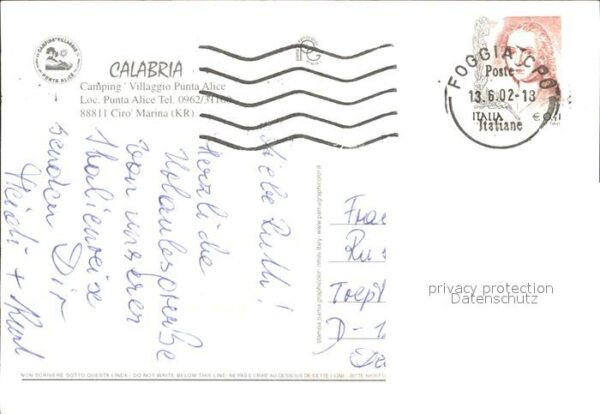 CAMPING VILLAGGIO
PUNTA ALICE
CALABRIA
Camping Villaggio Punta Alice
Loc. Punta Alice Tel. 0962/31
88811 Ciro' Marina (KR)
FOGGIA CPO
Poste
13.6.02-18
Italiane
ITALIA
€ 0,41
Liebe Ruth!
Herzliche
Urlaubsgrüße
von unserer
Italienreise
senden Dir
Heidi + Kurt
Frau
Ru
Toepf
D-1
privacy protection
Datenschutz
NON SCRIVERE SOTTO QUESTA LINEA - DO NOT WRITE BELOW THIS LINE - NE PAS ECRIRE AU-DESSOUS DE CETTE LIGNE - BITTE NICHT U